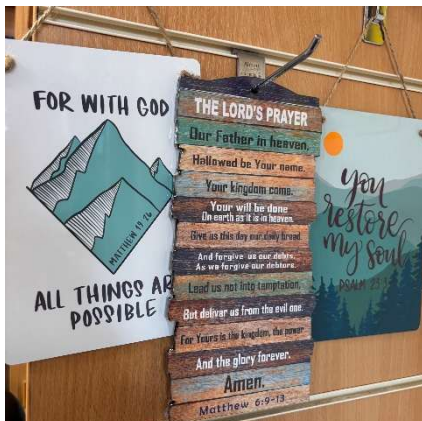 FOR WITH GOD
MATTHEW 19:26
ALL THINGS AR
POSSIBLE
THE LORD'S PRAYER
Our Father in heaven,
Hallowed be Your name.
Your kingdom come.
Your will be done
On earth as it is in heaven.
Give us this day our daily bread.
And forgive us our debts,
As we forgive our debtors.
Lead us not into temptation,
But deliver us from the evil one.
For Yours is the kingdom, the power
And the glory forever.
Amen.
Matthew 6:9-13
you
restore
my soul
PSALM 23:3